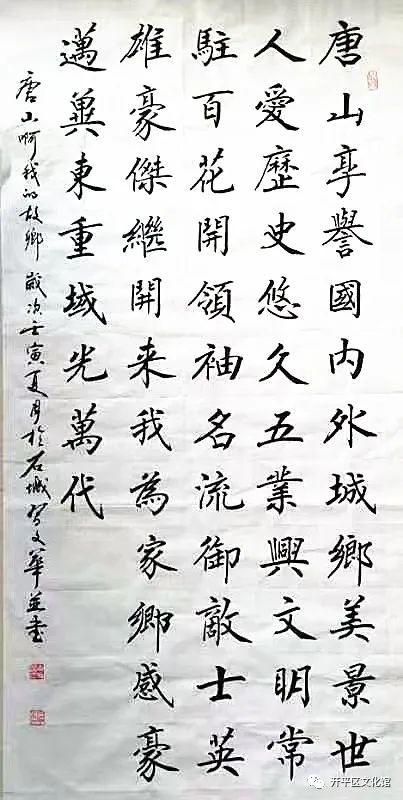 唐山享譽國內外城鄉美景世
人愛歷史悠久五業興文明常
駐百花開領袖名流御敵士英
雄豪傑繼開来我為家鄉感豪
邁冀東重域光萬代
唐山啊我的故鄉 歲次壬寅夏月於石城賀文華並書
开平区文化馆